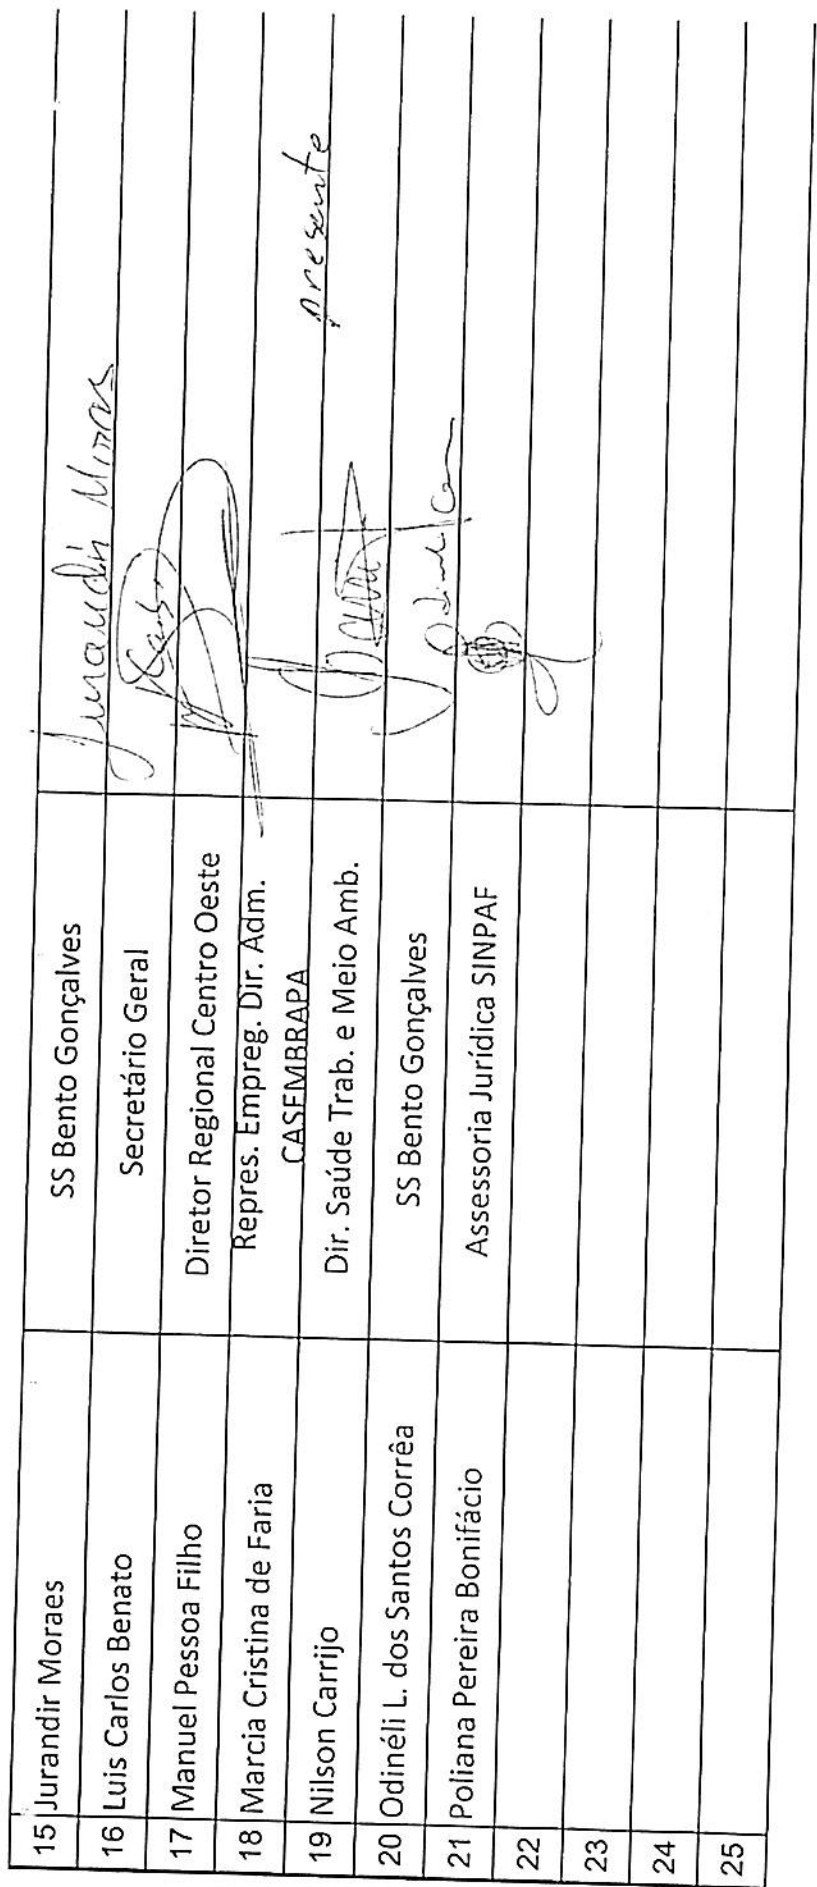 15 Jurandir Moraes SS Bento Gonçalves Jurandir Moraes
16 Luis Carlos Benato Secretário Geral
17 Manuel Pessoa Filho Diretor Regional Centro Oeste
18 Marcia Cristina de Faria Repres. Empreg. Dir. Adm.
CASEMBRAPA presente
19 Nilson Carrijo Dir. Saúde Trab. e Meio Amb.
20 Odinéli L. dos Santos Corrêa SS Bento Gonçalves
21 Poliana Pereira Bonifácio Assessoria Jurídica SINPAF
22
23
24
25